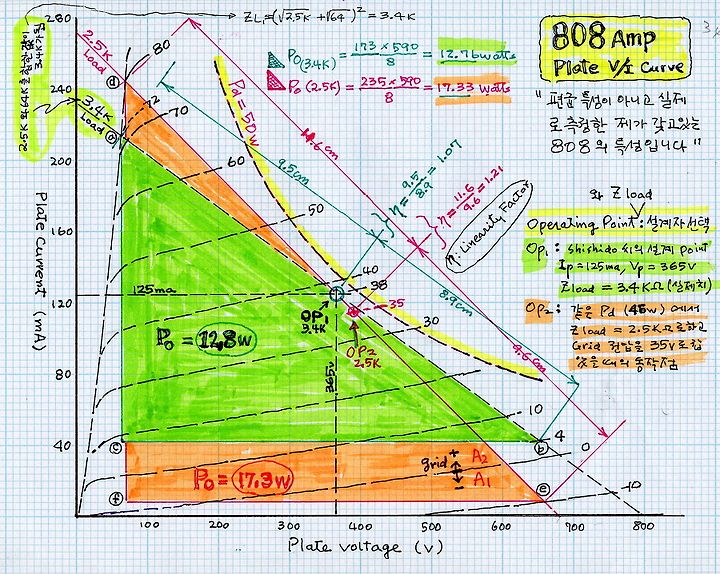 ZL₁=(√2.5K+√64)² = 3.4K
808 Amp
Plate V/I Curve
" 평균 특성이 아니고 실제
로 측정한 제가 갖고있는
808의 특성입니다 "
Po(3.4K) = 173×590 / 8 = 12.76watts
Po (2.5K) = 235×590 / 8 = 17.33 watts
2.5K
Load
3.4K
Load
Pd = 50W
14.6cm
9.5cm
8.9cm
9.6cm
η= 9.5/8.9 = 1.07
η= 11.6/9.6 = 1.21
η: Linearity Factor
와 Z load
Operating Point: 설계자선택
OP₁: Shishido 씨의 설계 Point
Ip=125ma, Vp = 365V
Zload = 3.4KΩ(실제치)
OP₂: 같은 Pd (45w) 에서
Zload = 2.5KΩ로하고
Grid 전압을 35V로 한
동작점
ⓓ
80
72
70
ⓐ
60
50
40
38
35
30
10
4
0
-10
125ma
OP₁
3.4K
OP₂
2.5K
365V
Po = 12.8W
Po = 17.3W
grid + A₂
- A₁
ⓒ
ⓑ
ⓕ
ⓔ
280
240
200
160
120
80
40
Plate Current (mA)
100 200 300 400 500 600 700 800
Plate voltage (V)